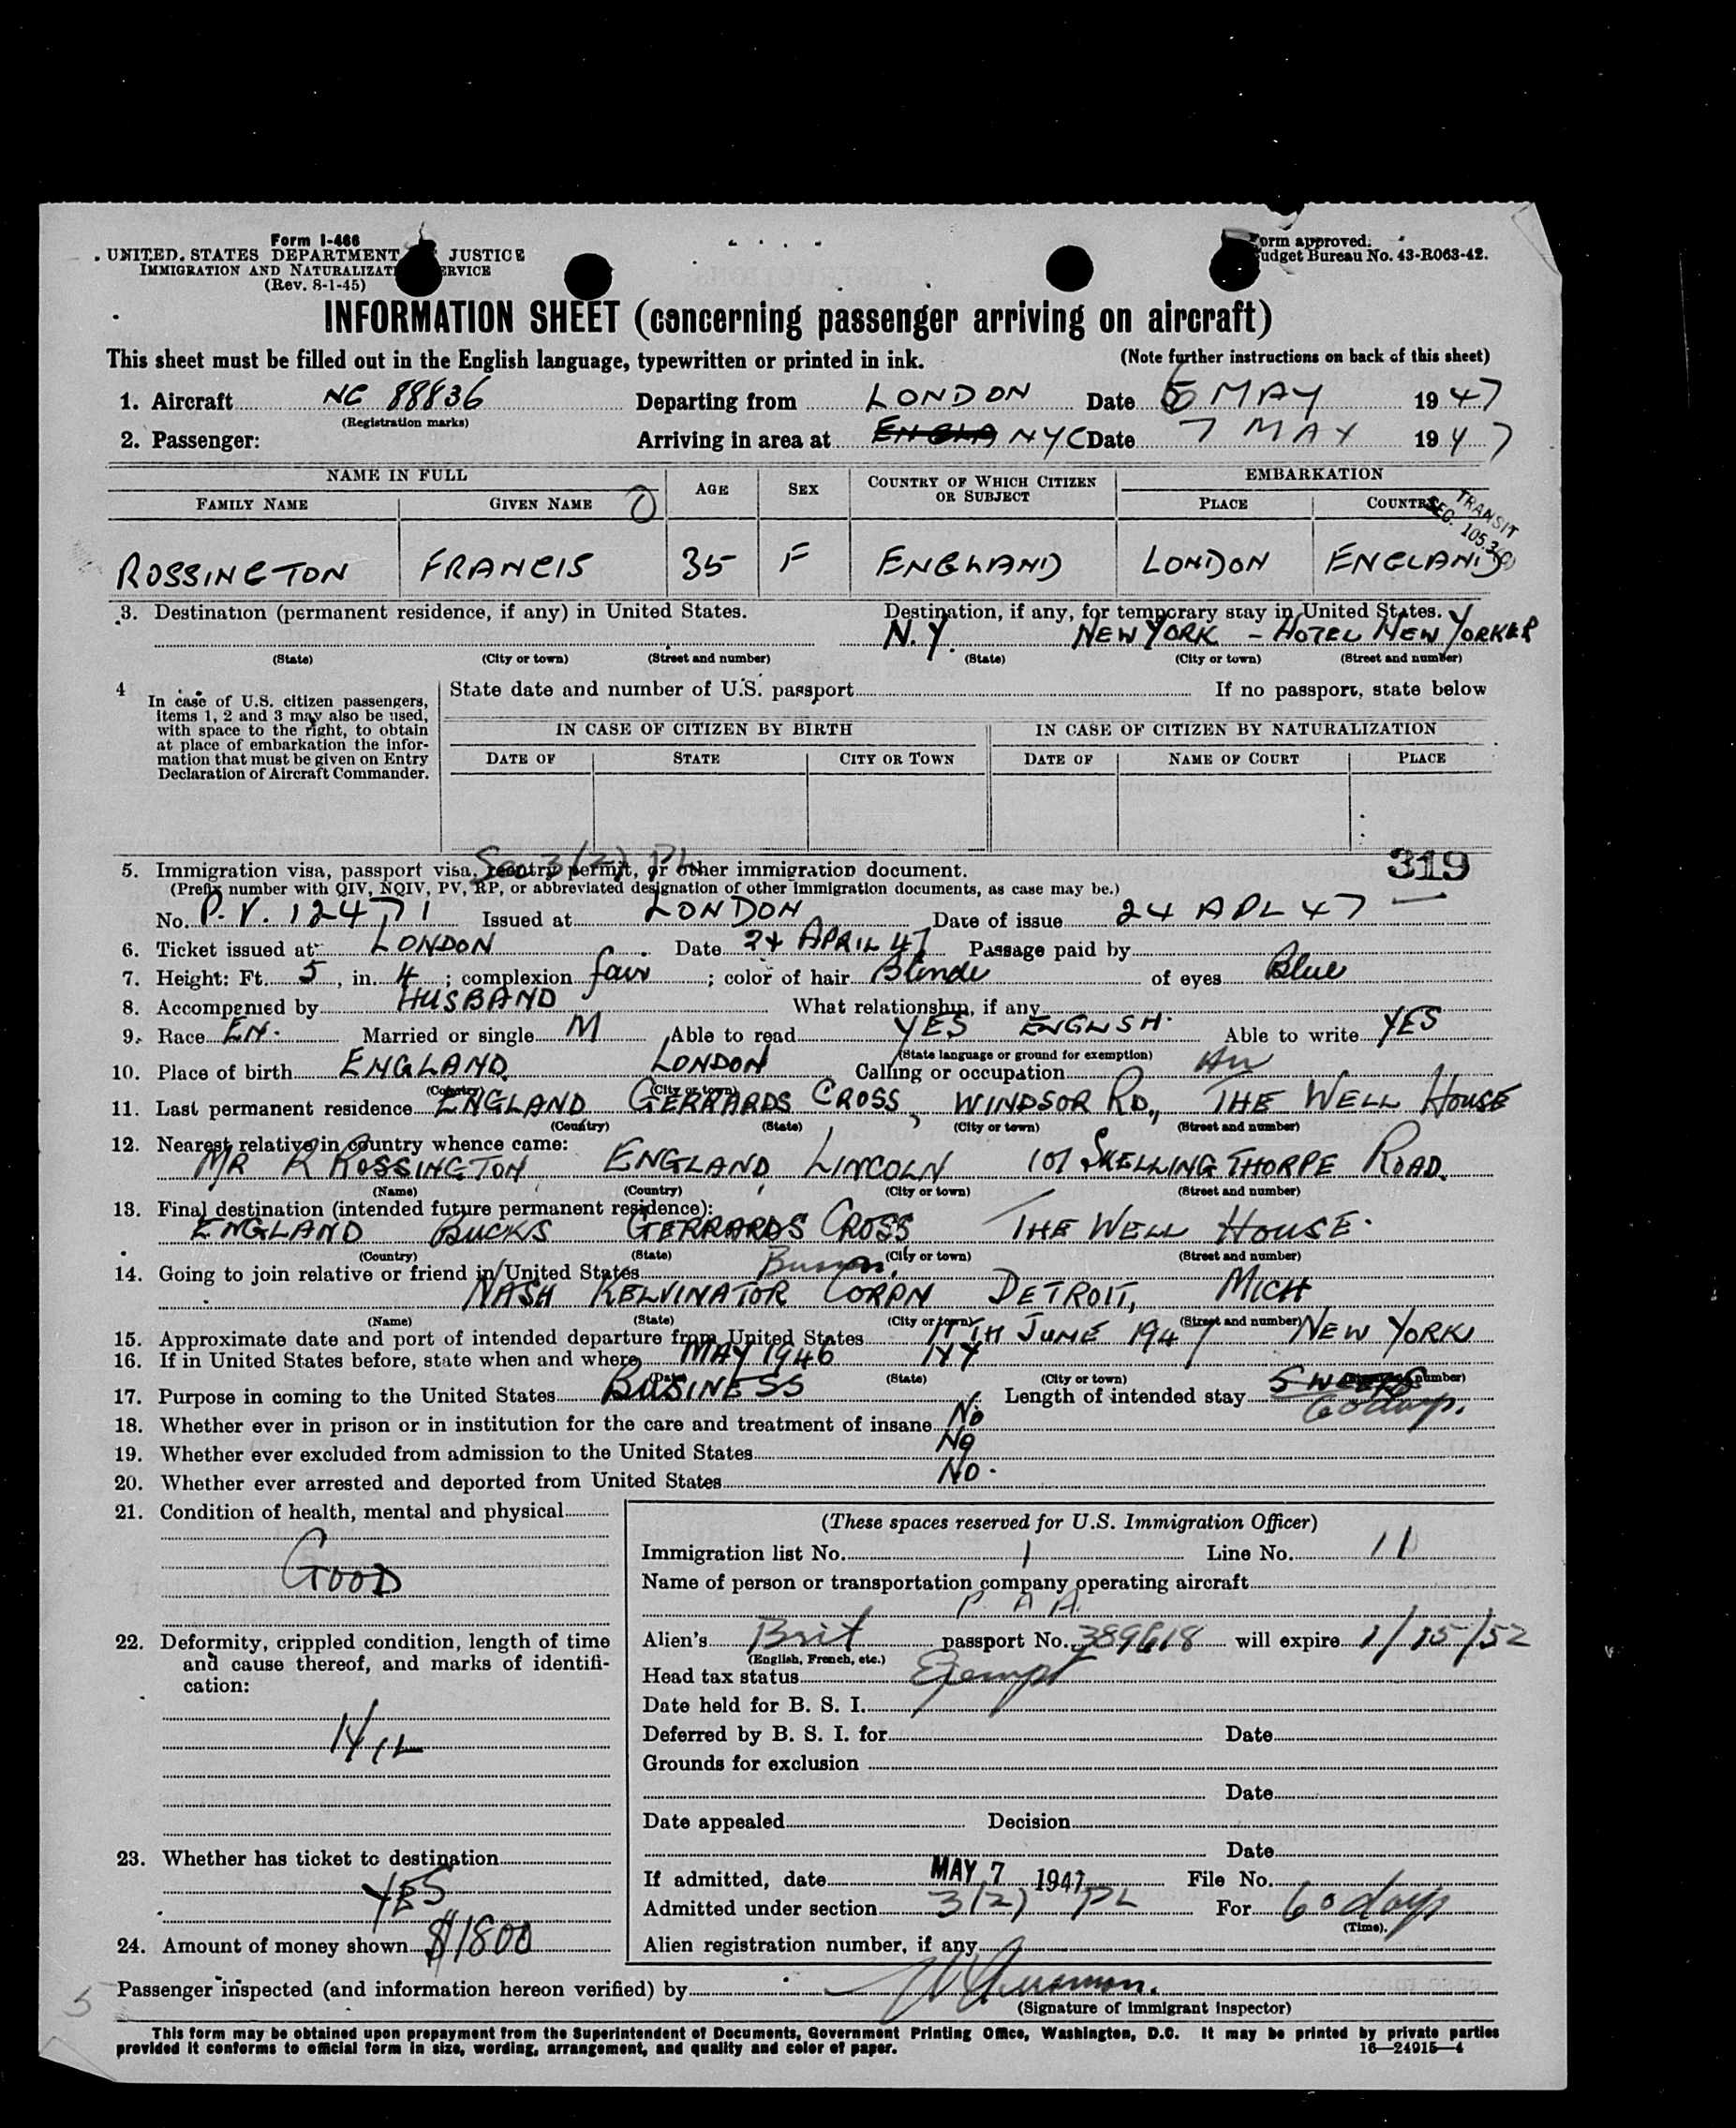 Form I-466
UNITED STATES DEPARTMENT JUSTICE
IMMIGRATION AND NATURALIZATI ERVICE
(Rev. 8-1-45)
orm approved.
udget Bureau No. 43-R063-42.
INFORMATION SHEET (concerning passenger arriving on aircraft)
This sheet must be filled out in the English language, typewritten or printed in ink. (Note further instructions on back of this sheet)
1. Aircraft NC 88836 Departing from LONDON Date 6 MAY 1947
(Registration marks)
2. Passenger: Arriving in area at ENGLA NYC Date 7 MAY 1947
NAME IN FULL AGE SEX COUNTRY OF WHICH CITIZEN OR SUBJECT EMBARKATION
FAMILY NAME GIVEN NAME PLACE COUNTRY
TRANSIT
SEC. 105.3
ROSSINGTON FRANCIS 35 F ENGLAND LONDON ENGLAND
3. Destination (permanent residence, if any) in United States. Destination, if any, for temporary stay in United States.
N.Y. NEW YORK - HOTEL NEW YORKER
(State) (City or town) (Street and number) (State) (City or town) (Street and number)
4 In case of U.S. citizen passengers, items 1, 2 and 3 may also be used, with space to the right, to obtain at place of embarkation the information that must be given on Entry Declaration of Aircraft Commander.
State date and number of U.S. passport If no passport, state below
IN CASE OF CITIZEN BY BIRTH IN CASE OF CITIZEN BY NATURALIZATION
DATE OF STATE CITY OR TOWN DATE OF NAME OF COURT PLACE
Sec 3(2) PL
319
5. Immigration visa, passport visa, reentry permit, or other immigration document.
(Prefix number with QIV, NQIV, PV, RP, or abbreviated designation of other immigration documents, as case may be.)
No. P.V. 12471 Issued at LONDON Date of issue 24 APL 47
6. Ticket issued at LONDON Date 24 APRIL 47 Passage paid by
7. Height: Ft. 5, in. 4; complexion fair; color of hair Blonde of eyes Blue
8. Accompanied by HUSBAND What relationship, if any
9. Race EN. Married or single M Able to read YES ENGLSH. Able to write YES
(State language or ground for exemption)
10. Place of birth ENGLAND LONDON Calling or occupation
(Country) (City or town)
11. Last permanent residence ENGLAND GERRARDS CROSS, WINDSOR RD., THE WELL HOUSE
(Country) (State) (City or town) (Street and number)
12. Nearest relative in country whence came:
MR R ROSSINGTON ENGLAND, LINCOLN 101 SKELLINGTHORPE ROAD.
(Name) (Country) (City or town) (Street and number)
13. Final destination (intended future permanent residence):
ENGLAND BUCKS GERRARDS CROSS THE WELL HOUSE.
(Country) (State) (City or town) (Street and number)
14. Going to join relative or friend in United States
NASH KELVINATOR CORPN DETROIT, MICH
(Name) (State) (City or town) (Street and number)
15. Approximate date and port of intended departure from United States 11TH JUNE 1947 NEW YORK
16. If in United States before, state when and where MAY 1946 NY
(Date) (State) (City or town) (Street and number)
17. Purpose in coming to the United States BUSINESS Length of intended stay 5 WEEKS
60 days.
18. Whether ever in prison or in institution for the care and treatment of insane No
19. Whether ever excluded from admission to the United States No
20. Whether ever arrested and deported from United States No.
21. Condition of health, mental and physical
GOOD
22. Deformity, crippled condition, length of time and cause thereof, and marks of identification:
NIL
23. Whether has ticket to destination
YES
24. Amount of money shown $1800
(These spaces reserved for U.S. Immigration Officer)
Immigration list No. 1 Line No. 11
Name of person or transportation company operating aircraft
P A A
Alien's Brit passport No. 389618 will expire 1/15/52
(English, French, etc.)
Head tax status Exempt
Date held for B. S. I.
Deferred by B. S. I. for Date
Grounds for exclusion
Date
Date appealed Decision
Date
If admitted, date MAY 7 1947 File No.
Admitted under section 3(2) PL For 60 days
(Time).
Alien registration number, if any
Passenger inspected (and information hereon verified) by
(Signature of immigrant inspector)
5
This form may be obtained upon prepayment from the Superintendent of Documents, Government Printing Office, Washington, D.C. It may be printed by private parties
provided it conforms to official form in size, wording, arrangement, and quality and color of paper. 16—24915-4